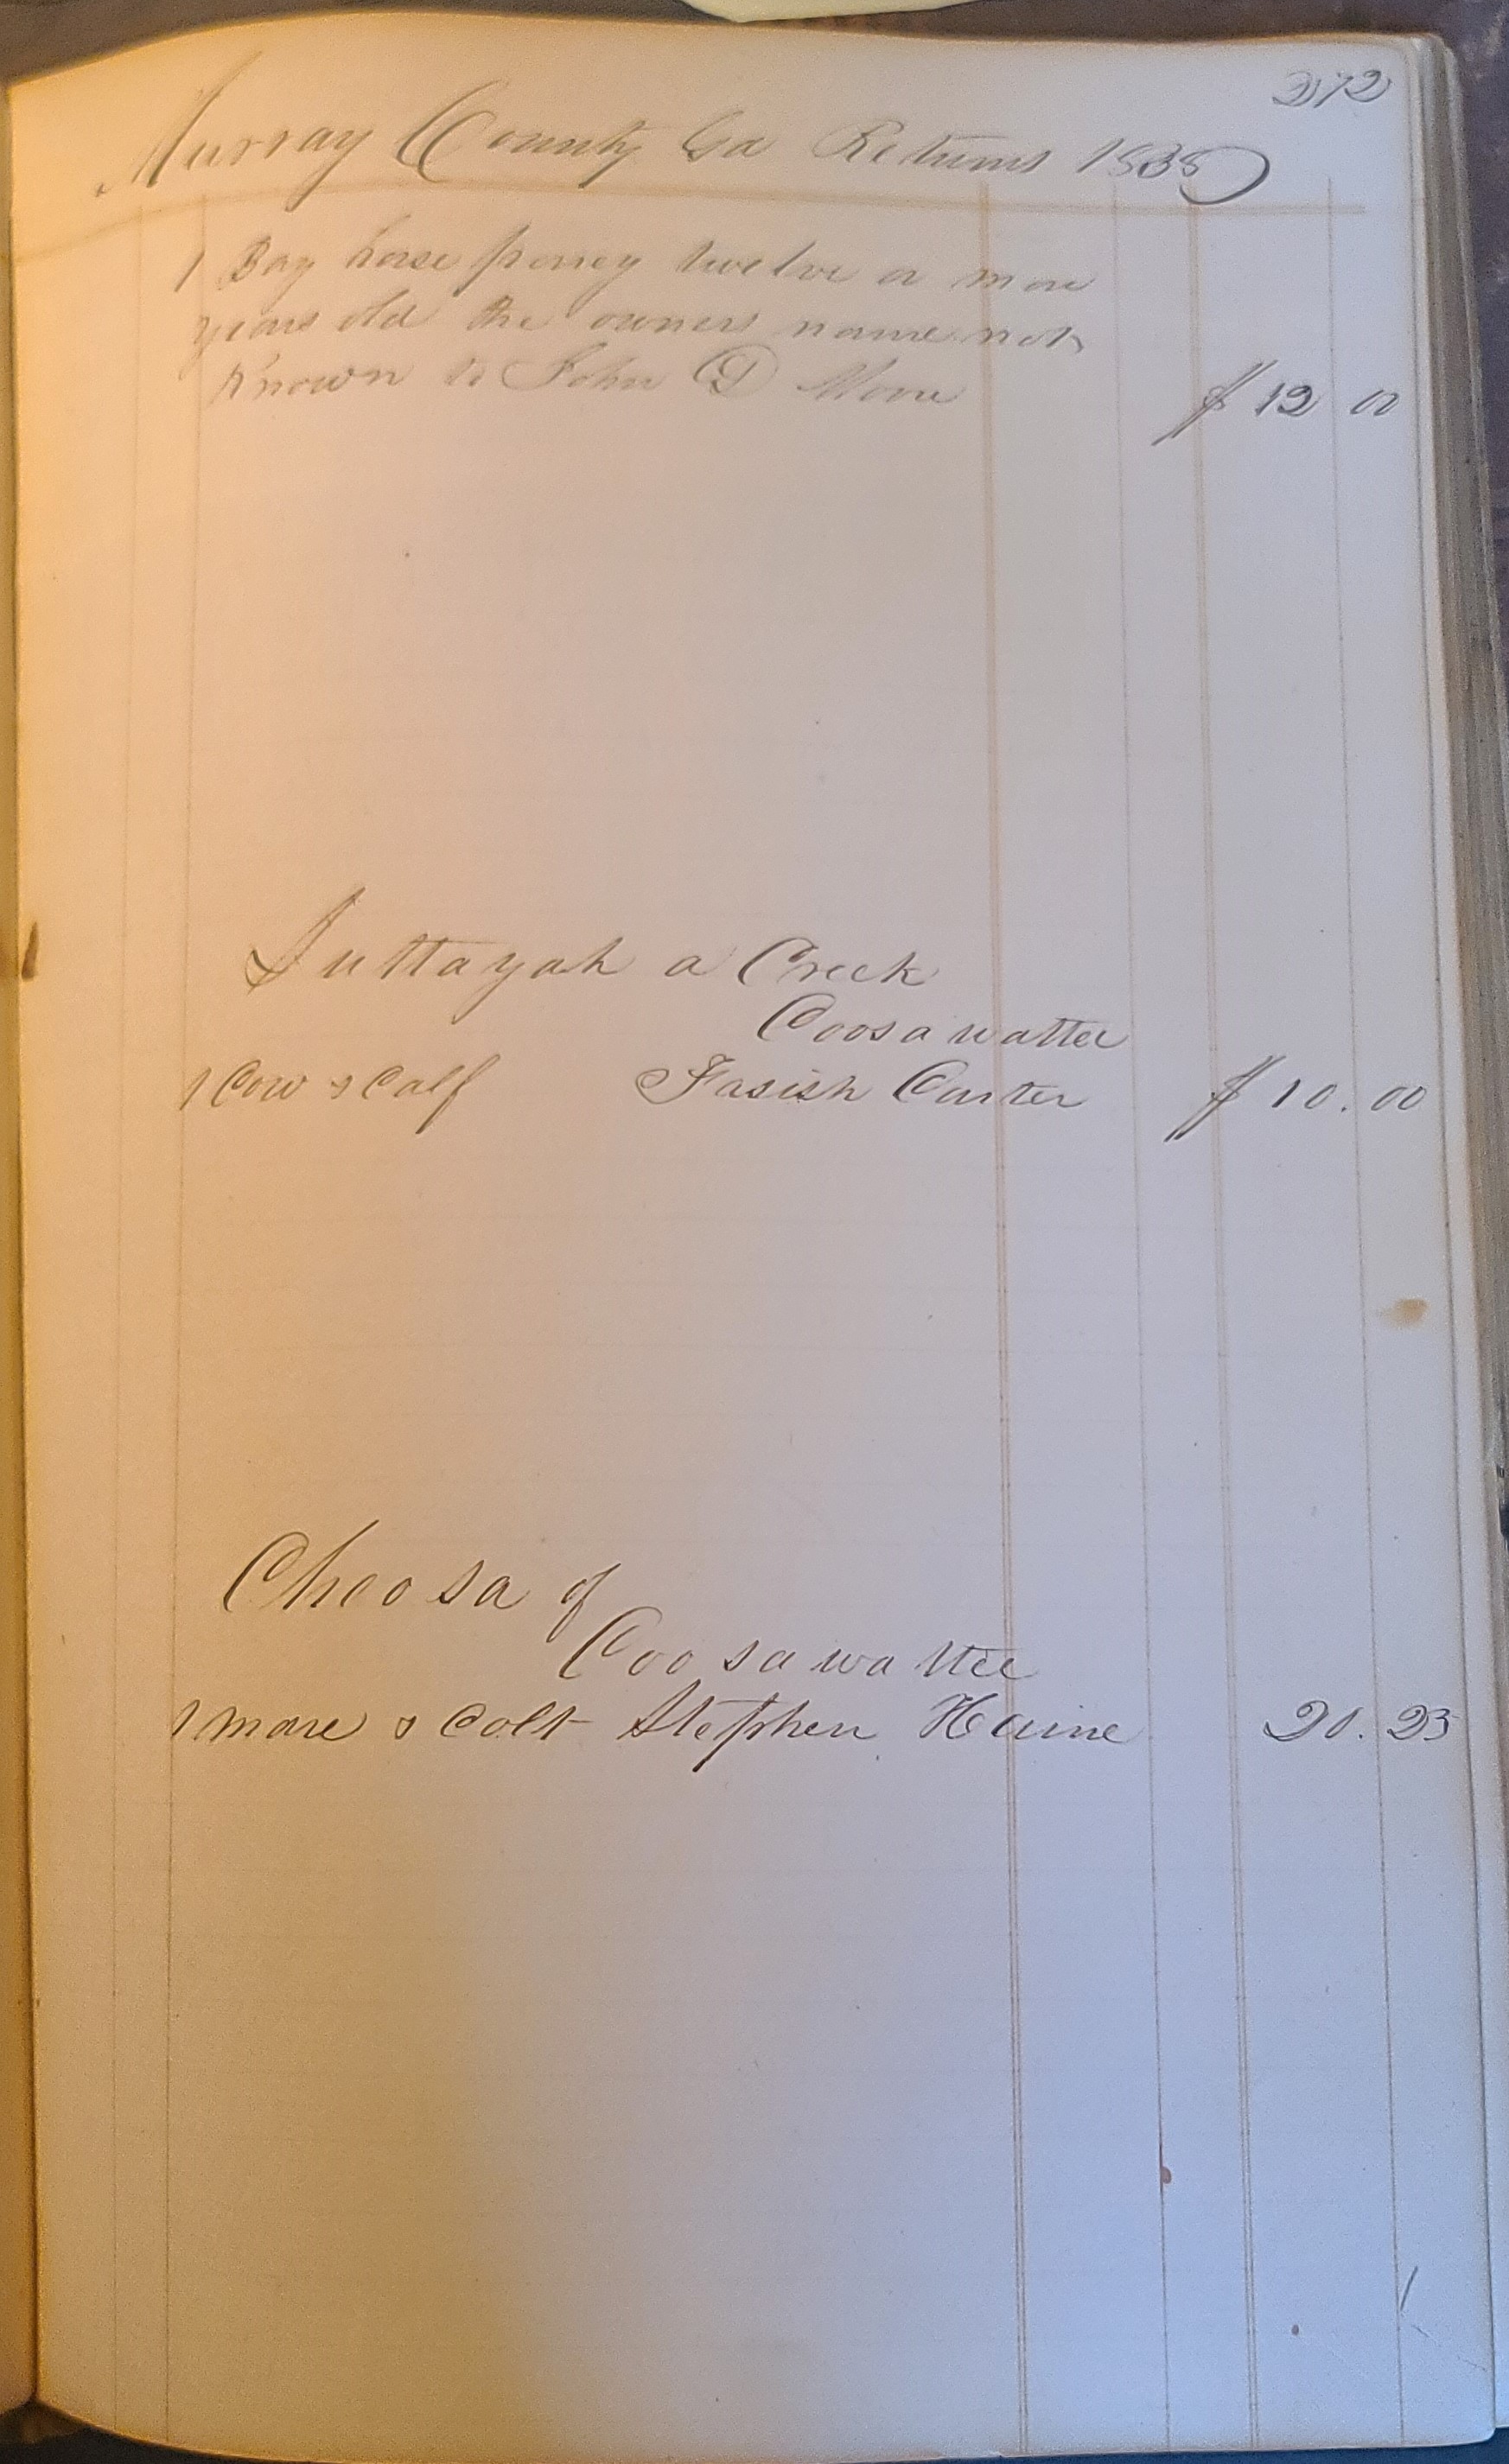 272
Murray County Ga Returns 1838
1 Bay horse poney twelve or more
years old the owners name not
known to John D Moore $12 00
Suttayah a Creek
Coosawattee
1 Cow & Calf Fasish Carter $10.00
Choosa of
Coosawattee
1 mare & Colt Stephen Haine 20.25